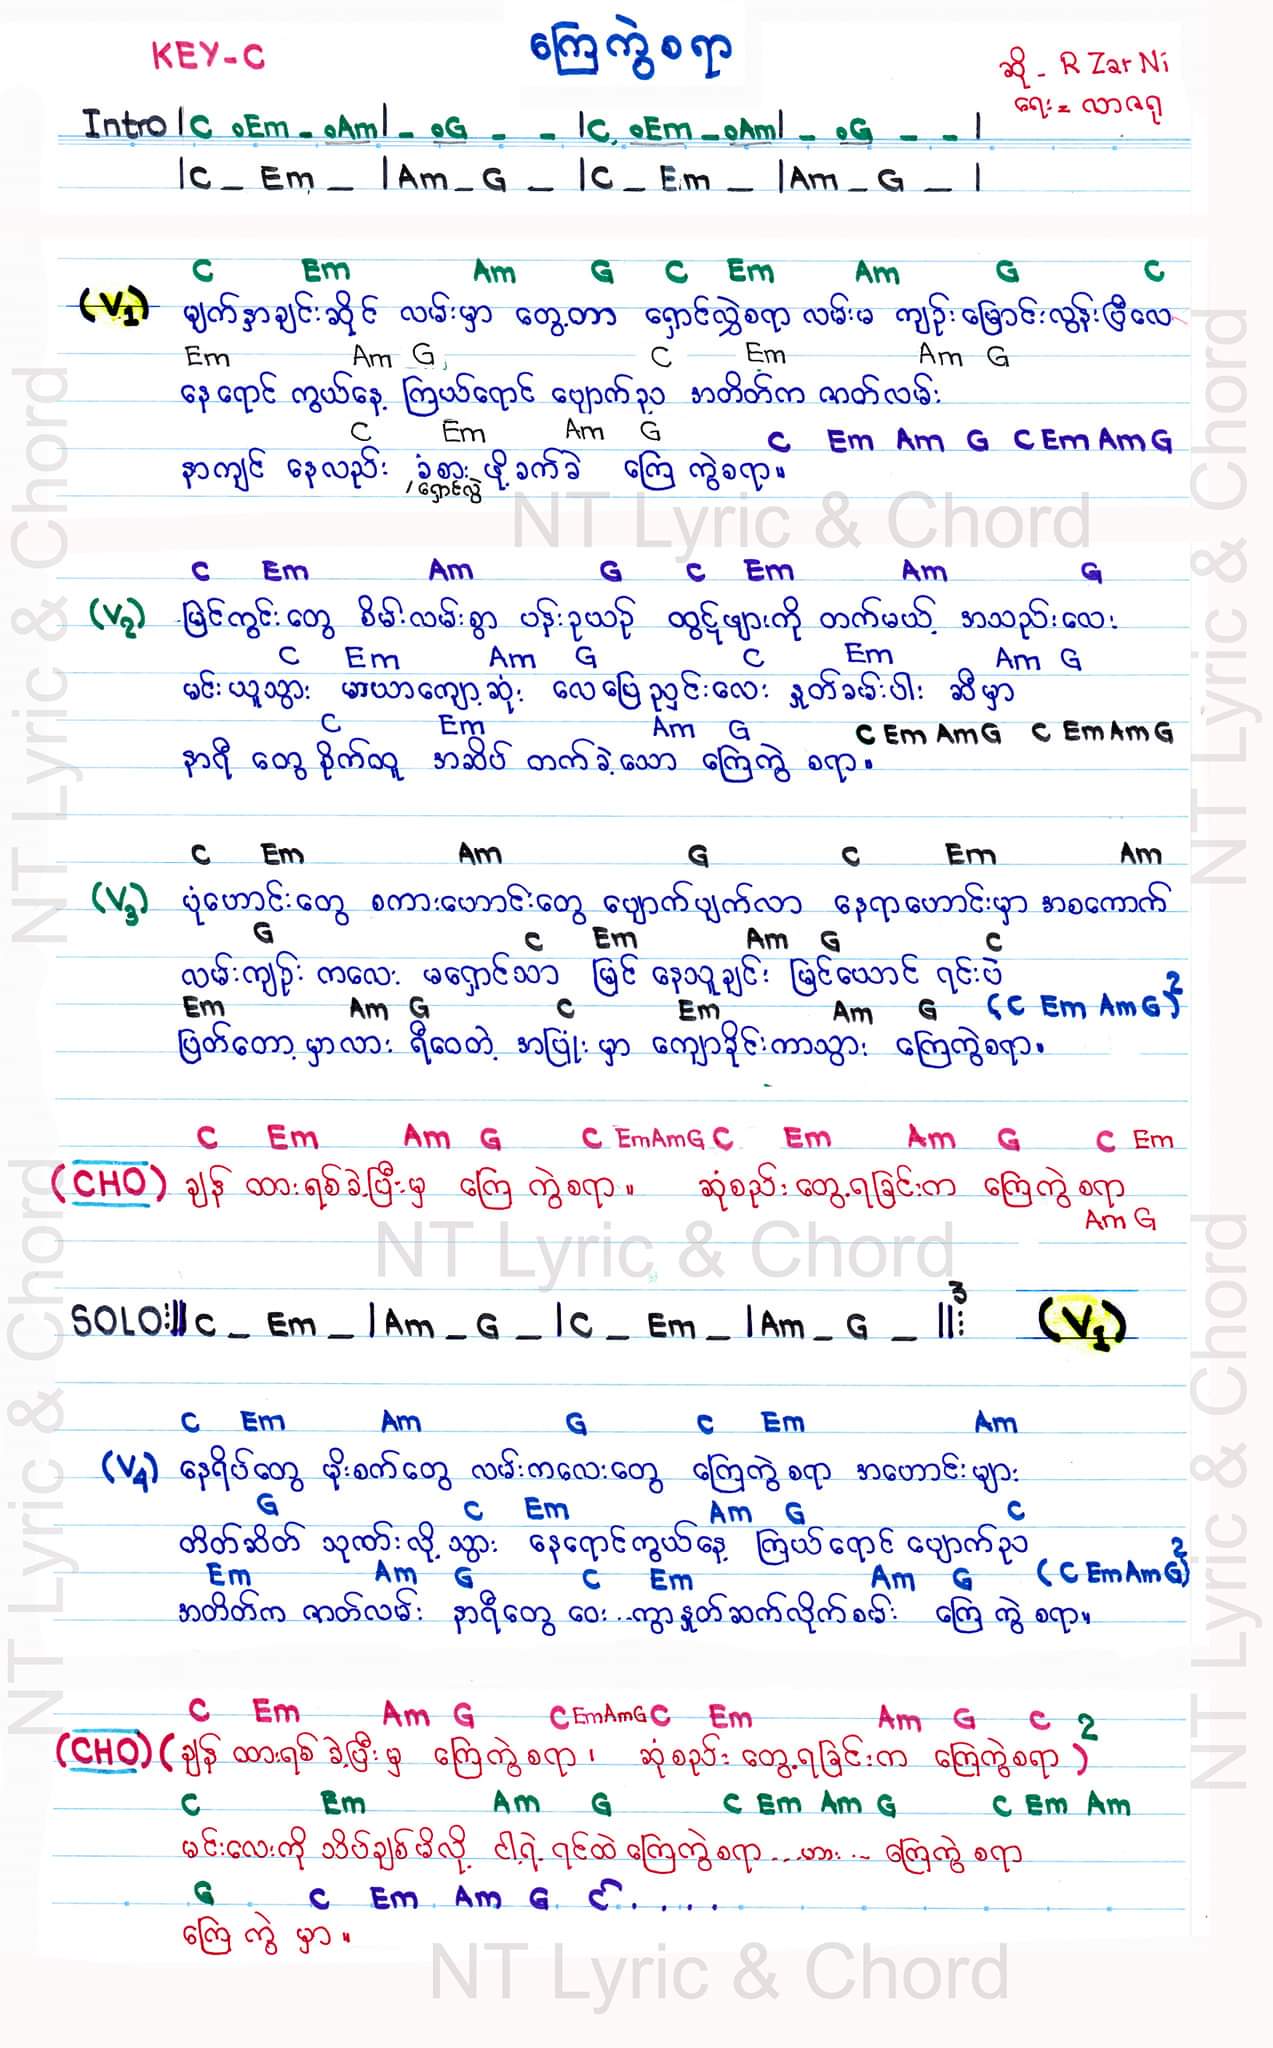 ကြေကွဲစရာ
KEY-C
ဆို - R Zar Ni
ရေး = လာဇရု
Intro | C oEm - oAm | - oG - - | C, oEm - oAm | - oG - - |
| C _ Em _ | Am _ G _ | C _ Em _ | Am _ G _ |
C Em Am G C Em Am G C
(V1) မျက်နှာချင်းဆိုင် လမ်းမှာ တွေ့တာ ရှောင်လွှဲစရာ လမ်းမ ကျဉ်းမြောင်းလွန်းပြီလေ
Em Am G C Em Am G
နေရောင် ကွယ်နေ့ ကြယ်ရောင် ပျောက်ည အတိတ်က ဇာတ်လမ်း
C Em Am G C Em Am G C Em Am G
နာကျင် နေလည်း ခံစား ဖို့ခက်ခဲ ကြေ ကွဲစရာ။
/ရှောင်လွှဲ
NT Lyric & Chord
C Em Am G C Em Am G
(V2) မြင်ကွင်းတွေ စိမ်းလမ်းစွာ ပန်းဥယဉ် ထွဋ်ဖျားကို တက်မယ့် အသည်းလေး
C Em Am G C Em Am G
မင်းယူသွား မာယာကျော့ဆုံး လေပြေညှင်းလေး နှုတ်ခမ်းပါး ဆီမှာ
C Em Am G C Em Am G C Em Am G
နာရီ တွေ စိုက်ထူ အဆိပ် တက်ခဲ့သော ကြေကွဲ စရာ။
C Em Am G C Em Am
(V3) ပုံဟောင်းတွေ စကားဟောင်းတွေ ပျောက်ပျက်လာ နေရာဟောင်းမှာ အစကောက်
G C Em Am G C
လမ်းကျဉ်း ကလေး မရှောင်သာ မြင် နေသူချင်း မြင်ယောင် ရင်းပဲ
Em Am G C Em Am G (C Em Am G)2
ဖြတ်တော့မှာလား ရီဝေတဲ့ အပြုံးမှာ ကျောခိုင်းကာသွား ကြေကွဲစရာ။
C Em Am G C EmAmG C Em Am G C Em
(CHO) ချန် ထားရစ်ခဲ့ပြီးမှ ကြေ ကွဲစရာ။ ဆုံစည်းတွေ့ရခြင်းက ကြေကွဲ စရာ
Am G
NT Lyric & Chord
SOLO:|| C _ Em _ | Am _ G _ | C _ Em _ | Am _ G _ ||:3 (V1)
C Em Am G C Em Am
(V4) နေရိပ်တွေ ဖိုးစက်တွေ လမ်းကလေးတွေ ကြေကွဲ စရာ အဟောင်းများ
G C Em Am G C
တိတ်ဆိတ် သုဏ်းလို့သွား နေရောင်ကွယ်နေ့ ကြယ်ရောင် ပျောက်ည
Em Am G C Em Am G (C EmAmG)2
အတိတ်က ဇာတ်လမ်း နာရီတွေ ဝေး..ကွာနှုတ်ဆက်လိုက်စမ်း ကြေ ကွဲ စရာ။
C Em Am G C EmAmG C Em Am G C 2
(CHO) (ချန် ထားရစ် ခဲ့ပြီးမှ ကြေကွဲစရာ၊ ဆုံစည်းတွေ့ရခြင်းက ကြေကွဲစရာ)
C Em Am G C Em Am G C Em Am
မင်းလေးကို သိပ်ချစ်မိလို့ ငါ့ရဲ့ ရင်ထဲ ကြေကွဲစရာ...ဟား.. ကြေကွဲ စရာ
G C Em Am G C.....
ကြေ ကွဲ မှာ။
NT Lyric & Chord
NT Lyric & Chord
NT Lyric & Chord
NT Lyric & Chord
NT Lyric & Chord